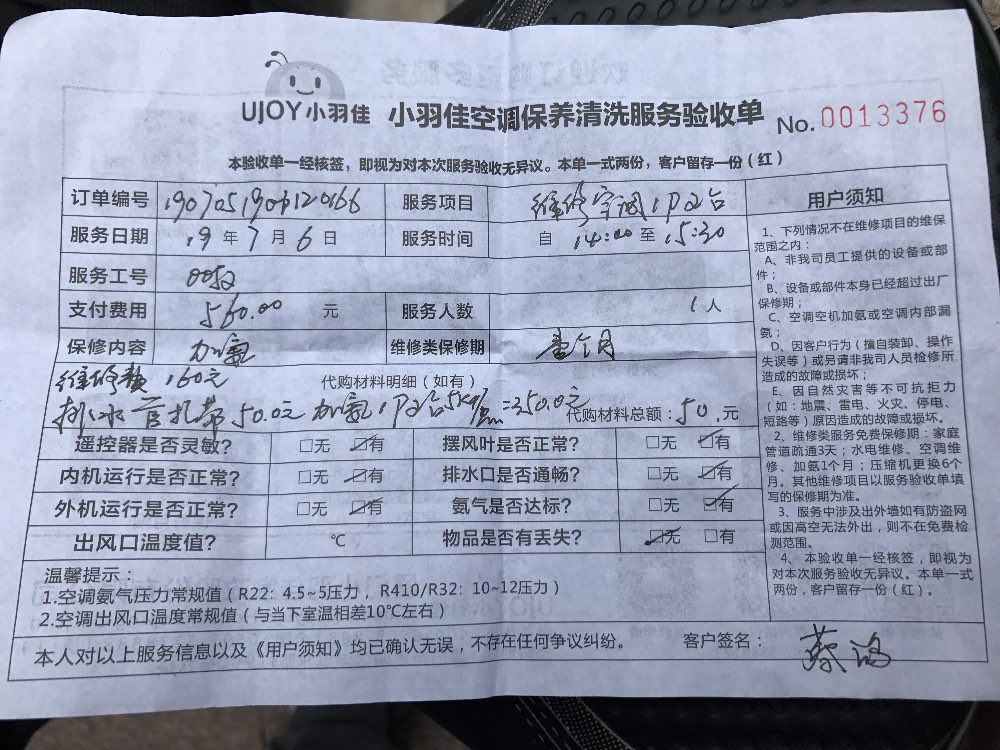 UJOY小羽佳 小羽佳空调保养清洗服务验收单 No.0013376
本验收单一经核签，即视为对本次服务验收无异议。本单一式两份，客户留存一份（红）
订单编号 服务项目 维修空调1P2台
服务日期 19年7月6日 服务时间 自14:00至15:30
服务工号
支付费用 560.00元 服务人数 1人
保修内容 加氨 维修类保修期 壹个月
维修费160元 代购材料明细（如有）
排水管扎带50.0元加氨1P2台 =350.0元 代购材料总额：50.元
遥控器是否灵敏? □无 ☑有 摆风叶是否正常? □无 ☑有
内机运行是否正常? □无 ☑有 排水口是否通畅? □无 ☑有
外机运行是否正常? □无 ☑有 氨气是否达标? □无 ☑有
出风口温度值? ℃ 物品是否有丢失? ☑无 □有
温馨提示：
1.空调氨气压力常规值（R22: 4.5~5压力， R410/R32: 10~12压力）
2.空调出风口温度常规值（与当下室温相差10℃左右）
本人对以上服务信息以及《用户须知》均已确认无误，不存在任何争议纠纷。 客户签名：
用户须知
1、下列情况不在维修项目的维保
范围之内：
A、非我司员工提供的设备或部
件；
B、设备或部件本身已经超过出厂
保修期；
C、空调空机加氨或空调内部漏
氨；
D、因客户行为（擅自装卸、操作
失误等）或另请非我司人员检修所
造成的故障或损坏；
E、因自然灾害等不可抗拒力
（如：地震、雷电、火灾、停电、
短路等）原因造成的故障或损坏。
2、维修类服务免费保修期：家庭
管道疏通3天；水电维修、空调维
修、加氨1个月；压缩机更换6个
月。其他维修项目以服务验收单填
写的保修期为准。
3、服务中涉及出外墙如有防盗网
或因高空无法外出，则不在免费检
测范围。
4、本验收单一经核签，即视为
对本次服务验收无异议。本单一式
两份，客户留存一份（红）。